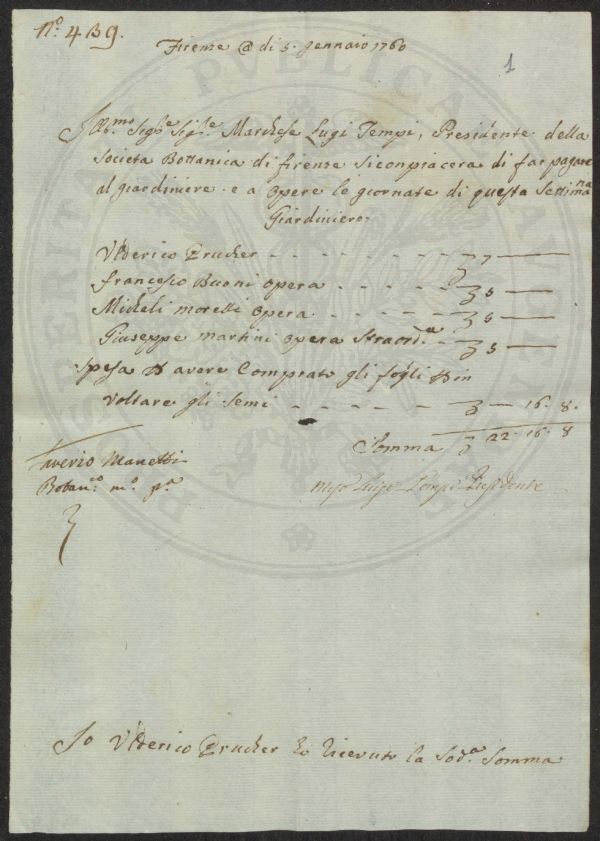 N.º 439.
Firenze @ di 5. Gennaio 1760
1
Ill.mo Sig.re Sig.re Marchese Luigi Tempi, Presidente della
Societa Bottanica di firenze si conpiacera di far pagare
al giardiniere e a opere le giornate di questa Settimana
Giardiniere
Ulderico Prucher - - - - - - - 7
francesco Buoni opera - - - - - 5
Micheli morelli opera - - - - - 5
Giuseppe martini opera Straord.a - - 5
Spesa d avere Comprato gli fogli
voltare gli Semi - - - - - - 16. 8.
Somma 22. 16. 8
Saverio Manetti
Botan.co m.o p.a
Luigi Tempi Presidente
Io Ulderico Prucher ho ricevuto la Sod.a Somma
PUBLICAE
PROSPERITATI